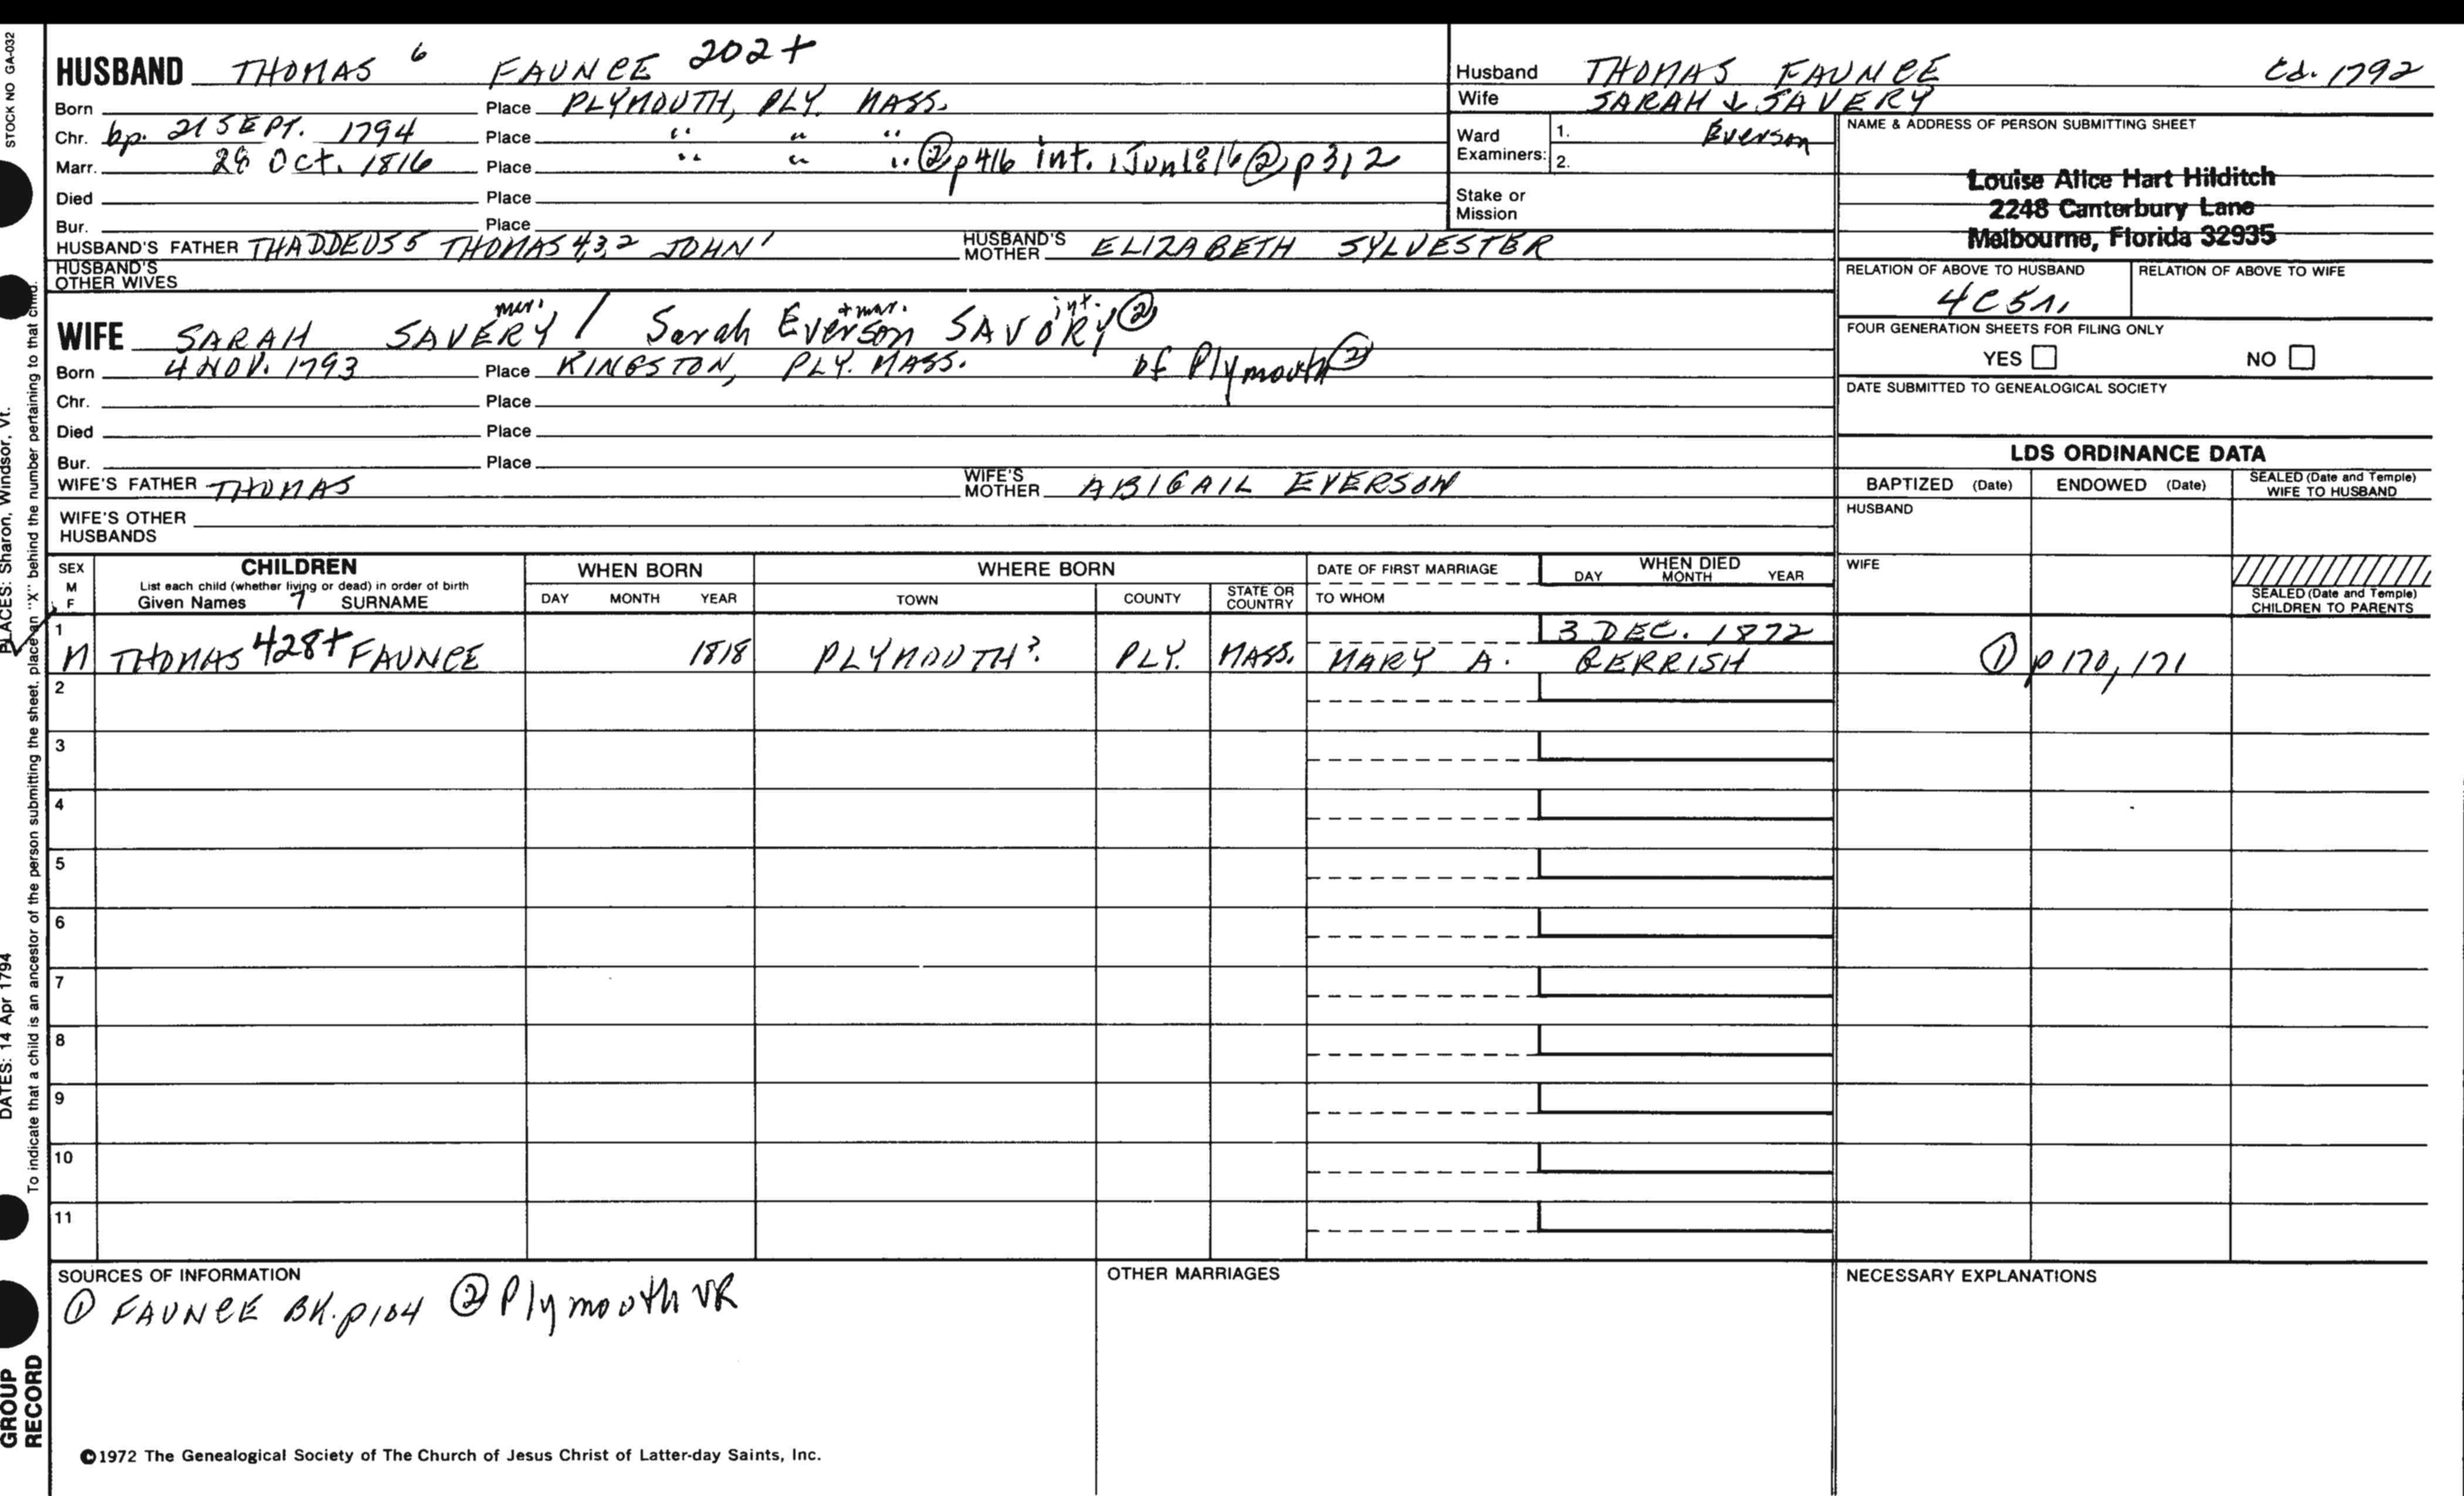 STOCK NO GA-032
HUSBAND THOMAS 6 FAUNCE 202+
Born Place PLYMOUTH, PLY. MASS.
Chr. bp. 21 SEPT. 1794 Place " " "
Marr. 28 Oct. 1816 Place " " " ② p416 int. 1Jun1816 ② p312
Died Place
Bur. Place
HUSBAND'S FATHER THADDEUS 5 THOMAS 4,3,2 JOHN 1 HUSBAND'S MOTHER ELIZABETH SYLVESTER
HUSBAND'S OTHER WIVES
mar. + mar. int.
WIFE SARAH SAVERY / Sarah Everson SAVORY ②
Born 4 NOV. 1793 Place KINGSTON, PLY. MASS. of Plymouth ②
Chr. Place
Died Place
Bur. Place
WIFE'S FATHER THOMAS WIFE'S MOTHER ABIGAIL EVERSON
WIFE'S OTHER HUSBANDS
Husband THOMAS FAUNCE Cd. 1792
Wife SARAH ↓ SAVERY
Everson
Ward Examiners: 1.
2.
Stake or Mission
NAME & ADDRESS OF PERSON SUBMITTING SHEET
Louise Alice Hart Hilditch
2248 Canterbury Lane
Melbourne, Florida 32935
RELATION OF ABOVE TO HUSBAND RELATION OF ABOVE TO WIFE
4C5r.
FOUR GENERATION SHEETS FOR FILING ONLY
YES NO
DATE SUBMITTED TO GENEALOGICAL SOCIETY
LDS ORDINANCE DATA
BAPTIZED (Date) ENDOWED (Date) SEALED (Date and Temple) WIFE TO HUSBAND
HUSBAND
WIFE
SEALED (Date and Temple) CHILDREN TO PARENTS
SEX M F
CHILDREN
List each child (whether living or dead) in order of birth
Given Names 7 SURNAME
WHEN BORN
DAY MONTH YEAR
WHERE BORN
TOWN COUNTY STATE OR COUNTRY
DATE OF FIRST MARRIAGE
TO WHOM
WHEN DIED
DAY MONTH YEAR
3 DEC. 1872
1 M THOMAS 428+ FAUNCE 1818 PLYMOUTH? PLY. MASS. MARY A. GERRISH ① p 170, 171
2
3
4
5
6
7
8
9
10
11
SOURCES OF INFORMATION
① FAUNCE BK. p104 ② Plymouth VR
OTHER MARRIAGES
NECESSARY EXPLANATIONS
©1972 The Genealogical Society of The Church of Jesus Christ of Latter-day Saints, Inc.
PLACES: Sharon, Windsor, Vt.
DATES: 14 Apr 1794
To indicate that a child is an ancestor of the person submitting the sheet, place an "X" behind the number pertaining to that child.
GROUP
RECORD